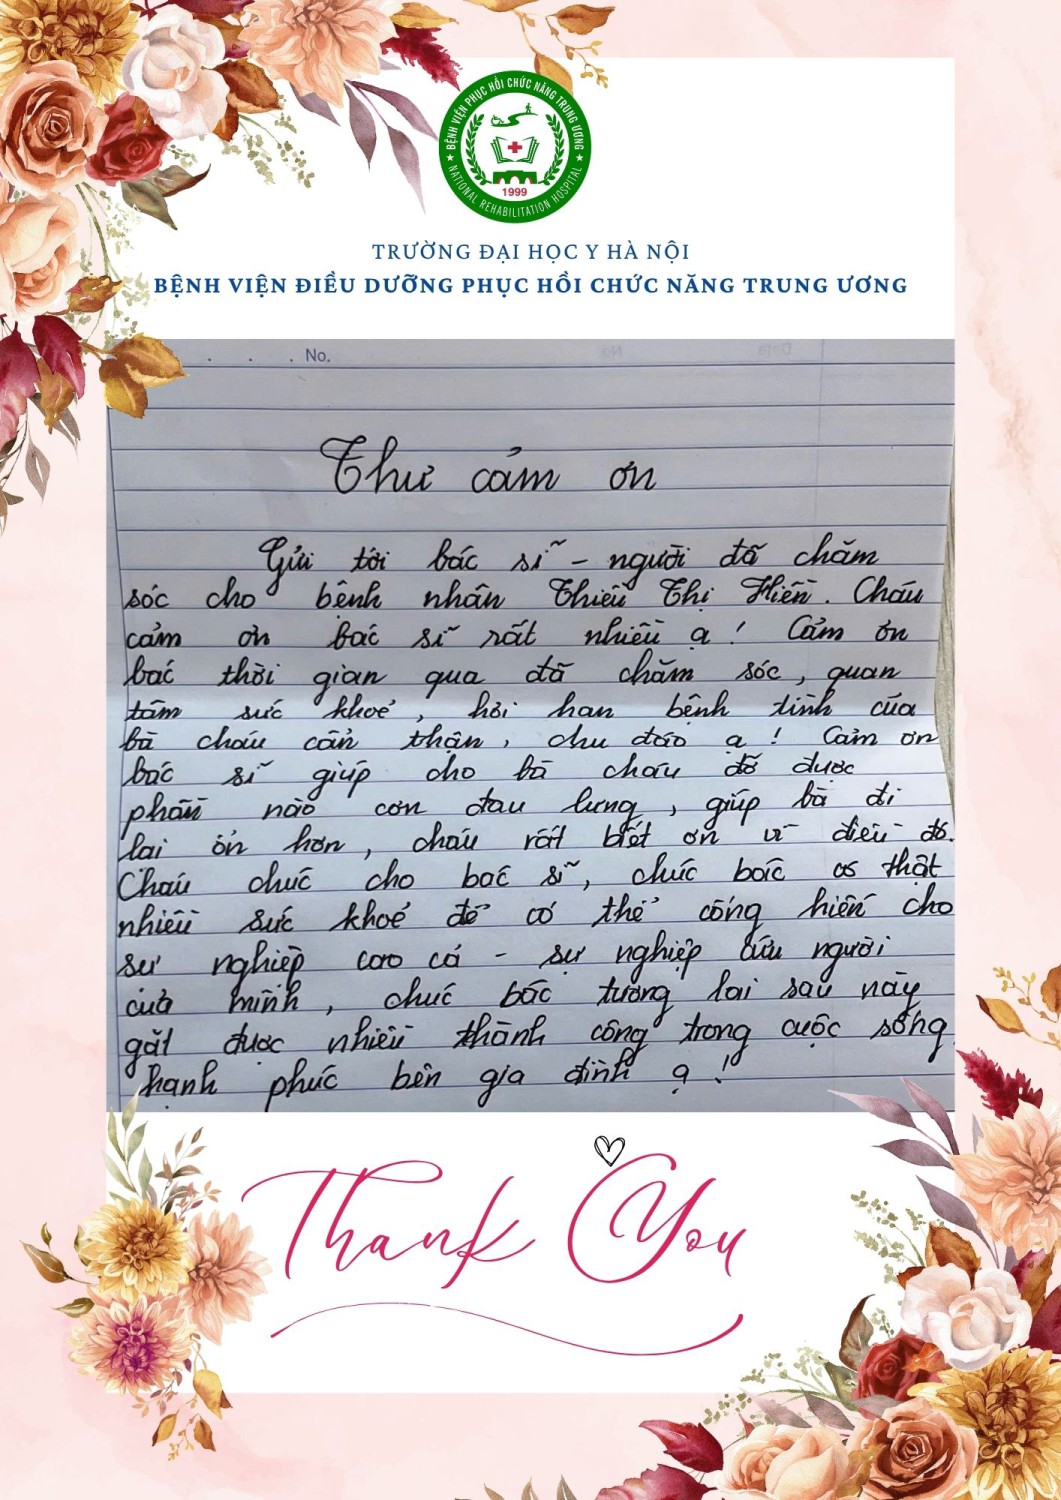 BỆNH VIỆN PHỤC HỒI CHỨC NĂNG TRUNG ƯƠNG
1999
NATIONAL REHABILITATION HOSPITAL
TRƯỜNG ĐẠI HỌC Y HÀ NỘI
BỆNH VIỆN ĐIỀU DƯỠNG PHỤC HỒI CHỨC NĂNG TRUNG ƯƠNG
No.
Thư cảm ơn
Gửi tới bác sĩ - người đã chăm
sóc cho bệnh nhân Thiều Thị Hiền. Cháu
cảm ơn bác sĩ rất nhiều ạ! Cảm ơn
bác thời gian qua đã chăm sóc, quan
tâm sức khoẻ, hỏi han bệnh tình của
bà cháu cẩn thận, chu đáo ạ! Cảm ơn
bác sĩ giúp cho bà cháu đỡ được
phần nào cơn đau lưng, giúp bà đi
lại ổn hơn, cháu rất biết ơn vì điều đó.
Cháu chúc cho bác sĩ, chúc bác có thật
nhiều sức khoẻ để có thể cống hiến cho
sự nghiệp cao cả - sự nghiệp cứu người
của mình, chúc bác tương lai sau này
gặt được nhiều thành công trong cuộc sống
hạnh phúc bên gia đình ạ!
Thank You